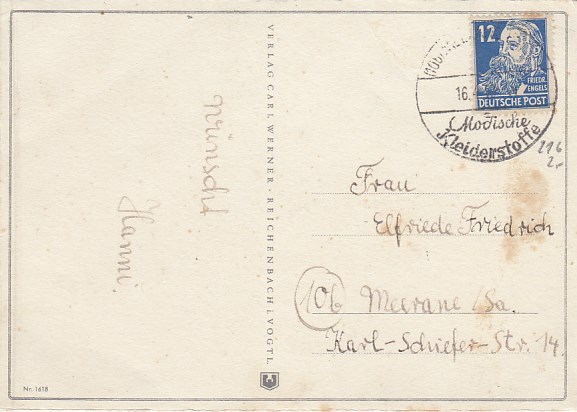 wünscht
Hanni.
VERLAG CARL WERNER · REICHENBACH I. VOGTL.
Nr. 1618
12
FRIEDR.
ENGELS
DEUTSCHE POST
16.
Modische
Kleiderstoffe
216
2,-
Frau
Elfriede Friedrich
10b Meerane/Sa.
Karl-Schiefer-Str. 14.